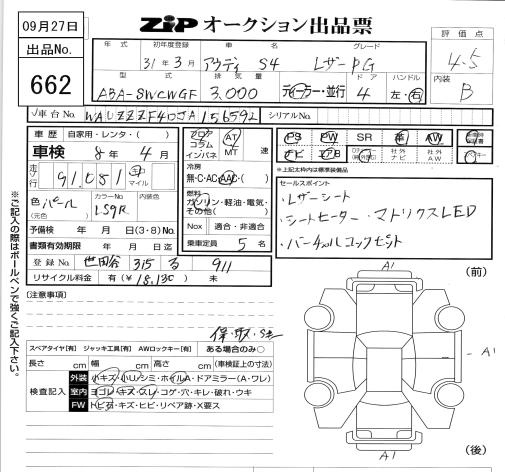 09月27日
出品No.
662
ZIP オークション出品票
評価点
4.5
内装
B
年式 初年度登録 車名 グレード
31年 3月 アウディ S4 レザーPG
型式 排気量 ドア ハンドル
ABA-8WCWGF 3,000 ディーラー・並行 4 左・右
車台No. WAUZZZF40JA156592 シリアルNo.
車歴 自家用・レンタ・( )
車検 8年 4月
走行 91,081 キロ マイル
色 パール (元色) カラーNo. LS9R 内装色
予備検 年 月 日(3・8)もの
書類有効期限 年 月 日迄
登録No. 世田谷 315 る 911
リサイクル料金 有(¥18,130) 未
フロア コラム インパネ AT MT 速
冷房 無・C・AC・AAC・( )
燃料 ガソリン・軽油・電気・その他( )
Nox 適合・非適合
乗車定員 5 名
PS PW SR 革 AW
ナビ エアB 社外ナビ 社外AW
*上記太枠内は標準装備品
セールスポイント
・レザーシート
・シートヒーター・マトリクスLED
・バーチャルコックピット
※ご記入の際はボールペンで強くご記入下さい。
[注意事項]
保・取・Sキー
スペアタイヤ[有] ジャッキ工具[有] AWロックキー[有] ある場合のみ○
長さ cm 幅 cm 高さ cm (車検証上の寸法)
検査記入
外装 小キズ・小凹・シミ・ホイルA・ドアミラー(A・ワレ)
室内 ヨゴレ・キズ・スレ・コゲ・穴・キレ・破れ・ウキ
FW トビ石・キズ・ヒビ・リペア跡・X要ス
A1
(前)
A1
A1
(後)